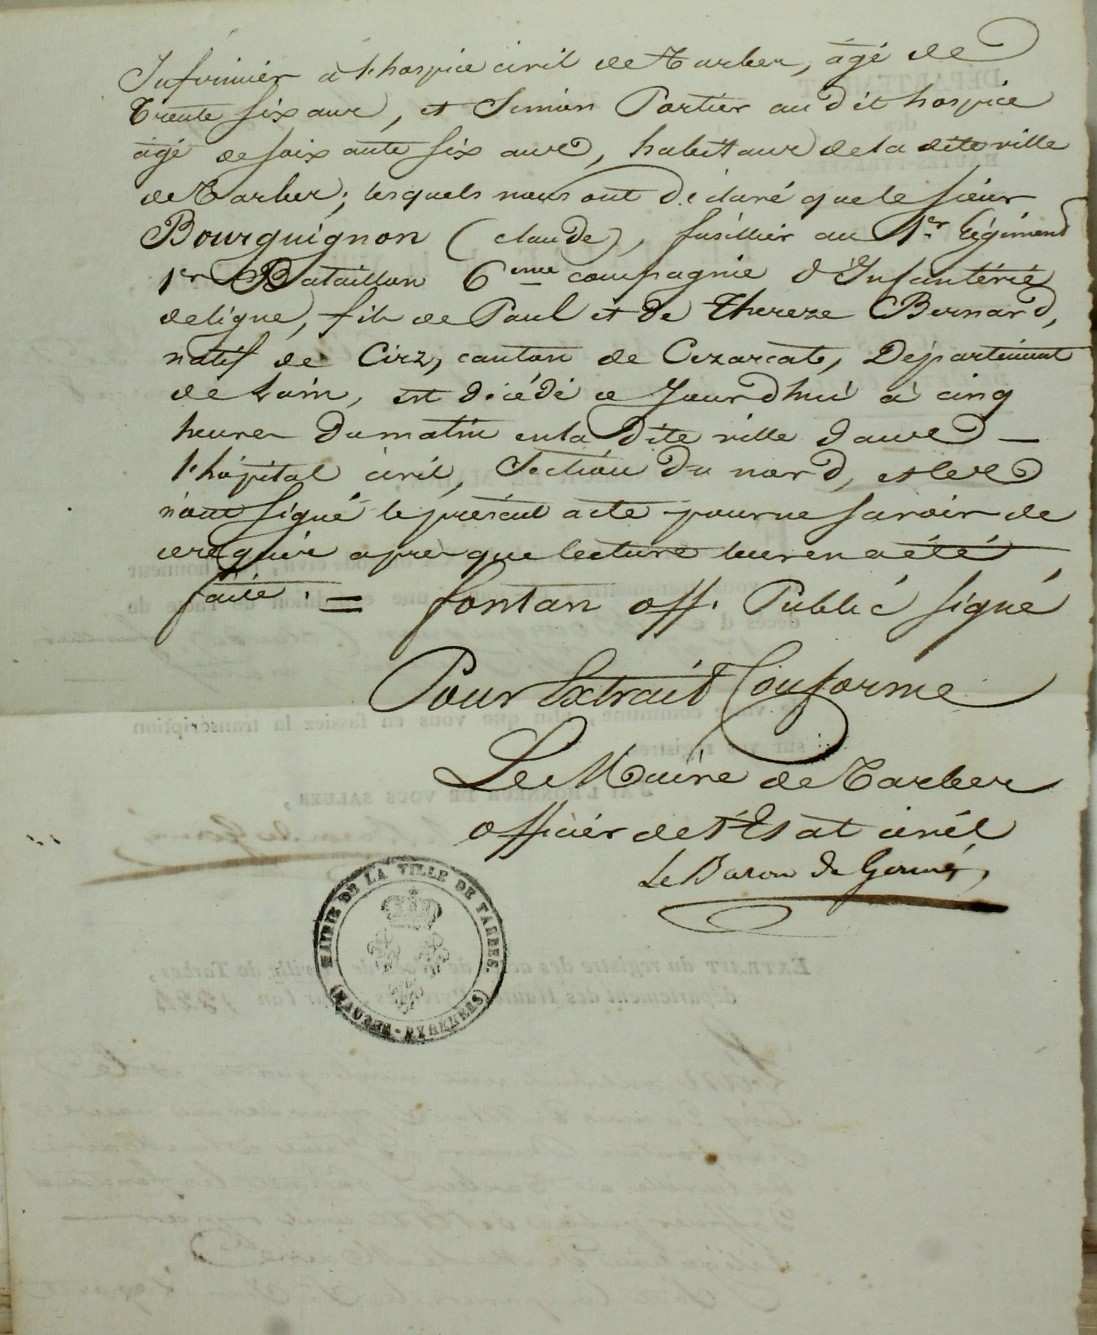 Infirmier à l'hospice civil de Tarbes, âgé de
trente six ans, et Simon Portier au dit hospice
âgé de soixante six ans, habitans de la dite ville
de Tarbes; lesquels nous ont déclaré que le sieur
Bourguignon (Claude), fusillier au 1er Régiment
1er Bataillon 6eme compagnie d'Infantérie
de ligne, fils de Paul et de Thereze Bernard,
natif de Cirz, canton de Cezarcate, Département
de Lain, est décédé ce Jourdhui à cinq
heures du matin en la dite ville dans
l'hôpital civil, Section du nord, et les d
n'ont signé le présent acte pour ne savoir de
ce réquis après que lecture leur en a été
faite. = fontan off. Public signé
Pour Extrait Conforme
Le Maire de Tarbes
officier de l'Etat civil
Le Baron de Gonnès
MAIRIE DE LA VILLE DE TARBES.
(HAUTES-PYRÉNÉES)